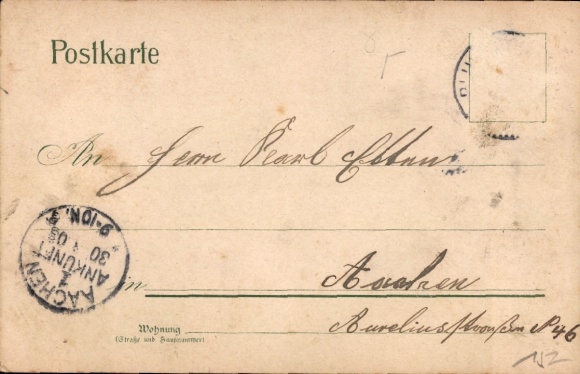 Postkarte
An Herrn Karl Etten
AACHEN
1
ANKUNFT
30 05
9-10N.
in Aachen
Wohnung
(Straße und Hausnummer)
Aureliusstraßen No 46
152